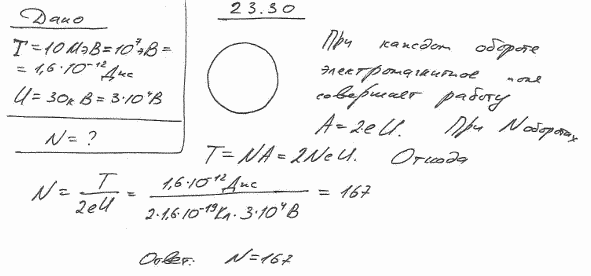 Дано
23.30
T=10МэВ=10⁷эВ=
=1,6·10⁻¹²Дж
U=30кВ=3·10⁴В
N=?
При каждом обороте
электромагнитное поле
совершает работу
A=2eU. При N оборотах
T=NA=2NeU. Отсюда
N = T/2eU = 1,6·10⁻¹²Дж / 2·1,6·10⁻¹⁹Кл·3·10⁴В = 167
Ответ: N=167